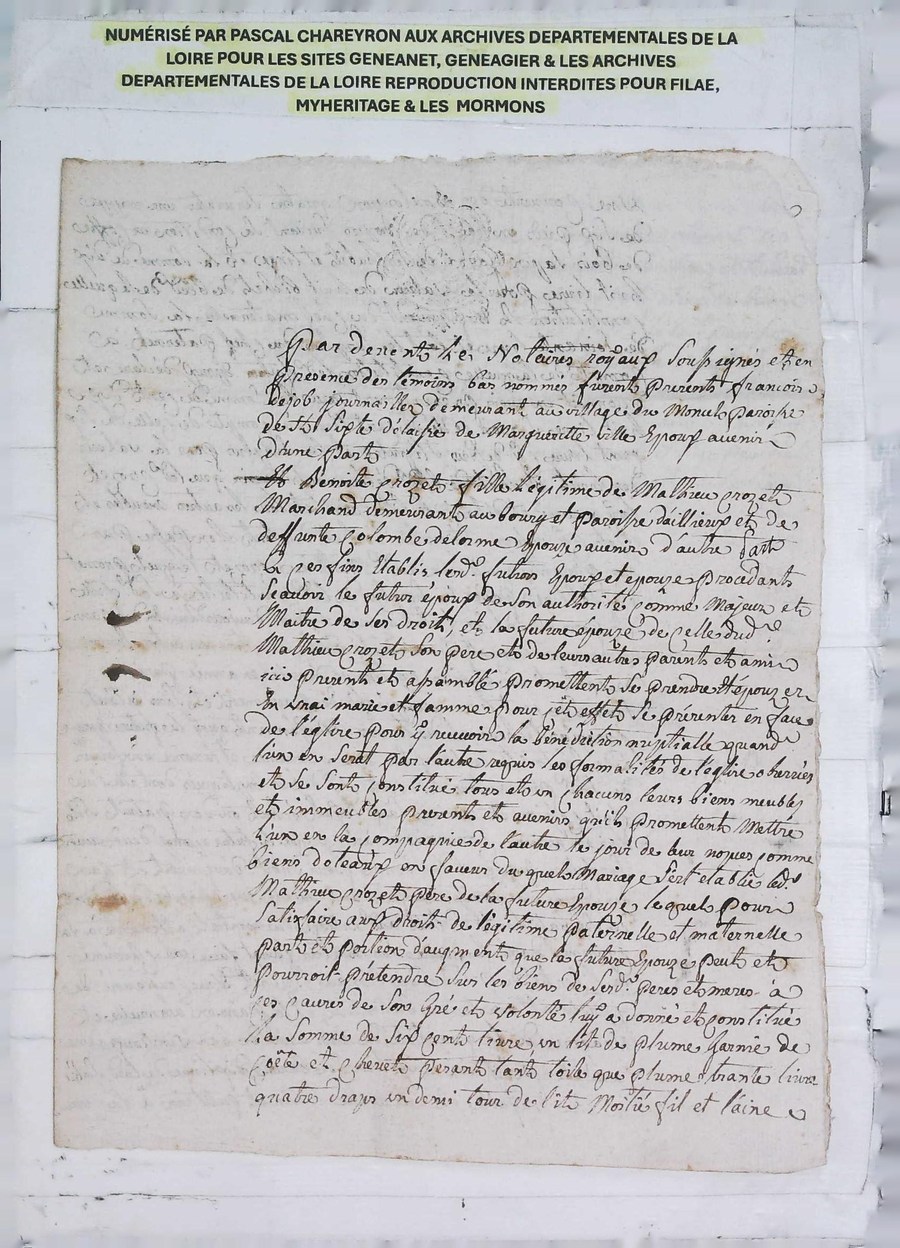 NUMÉRISÉ PAR PASCAL CHAREYRON AUX ARCHIVES DEPARTEMENTALES DE LA
LOIRE POUR LES SITES GENEANET, GENEAGIER & LES ARCHIVES
DEPARTEMENTALES DE LA LOIRE REPRODUCTION INTERDITES POUR FILAE,
MYHERITAGE & LES MORMONS
Par devent Le Notaires royaux Soussignés et en
Presence des temoins bas nommés furent presents francois
dejob journallier demeurant au village du Moncel paroisse
de St Sixte délaissé de Marguerite ville Epoux avenir
d'une part
Et Benoite crozet fille légitime de Mathieu crozet
Marchand demeurant au bourg et paroisse dallieux et de
deffunte Colombe delorme Epouze avenir d'autre part
à ces fins Etablis lesd. futurs Epoux et epouze procedants
scavoir le futur époux de son authorité comme Majeur et
Maitre de ses droit, et la future épouze de celle dud
Mathieu crozet son pere et de leurs autres parents et amis
icis presents et assamblé promettent se prendre et épouzer
En vrai marie et famme pour jét effet se présenter en face
de l'église pour y recevoir la bénédiction nuptialle quand
l'un en serat par l'autre requis les formalités de l'église observées
et se sont constitué tous et un chacuns leurs biens meubles
et immeubles presents et avenirs qu'ils promettent Mettre
L'un en la compagnie de l'autre le jour de leur nopces comme
biens doteaux en faveur du quel Mariage s'est etablie led.
Mathieu crozet père de la future Epouze lequel pour
satisfaire aux droit de légitime paternelle et maternelle
part et portion d'augment que la future Epouze peut et
pourroit prétendre sur les biens de sesd. peres et meres à
ces causes de son gré et volonté luy a donné et constitué
La somme de six cent livre un lit de plume garnie de
coëte et chevet pesant tant toile que plume trante livre
quatre draps un demi tour de lit Moitié fil et laine